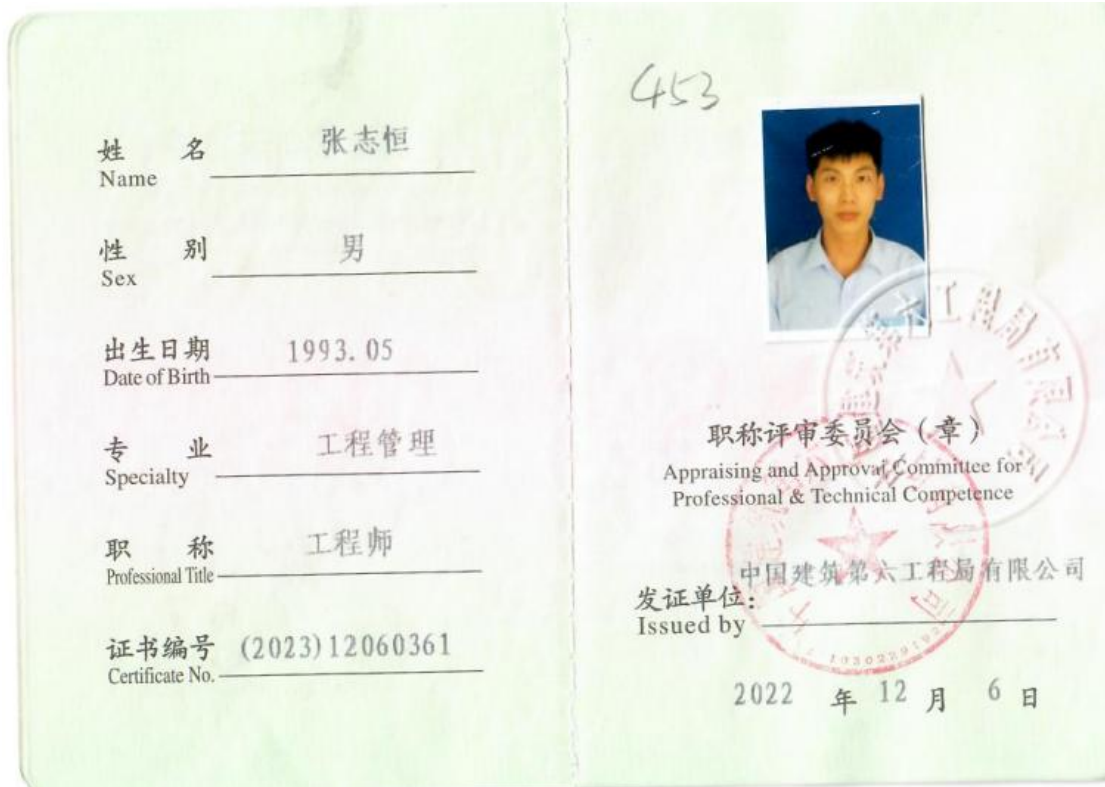 姓 名 张志恒
Name
性 别 男
Sex
出生日期 1993.05
Date of Birth
专 业 工程管理
Specialty
职 称 工程师
Professional Title
证书编号 (2023)12060361
Certificate No.
453
职称评审委员会（章）
Appraising and Approval Committee for
Professional & Technical Competence
中国建筑第六工程局有限公司
发证单位：
Issued by
2022 年 12 月 6 日